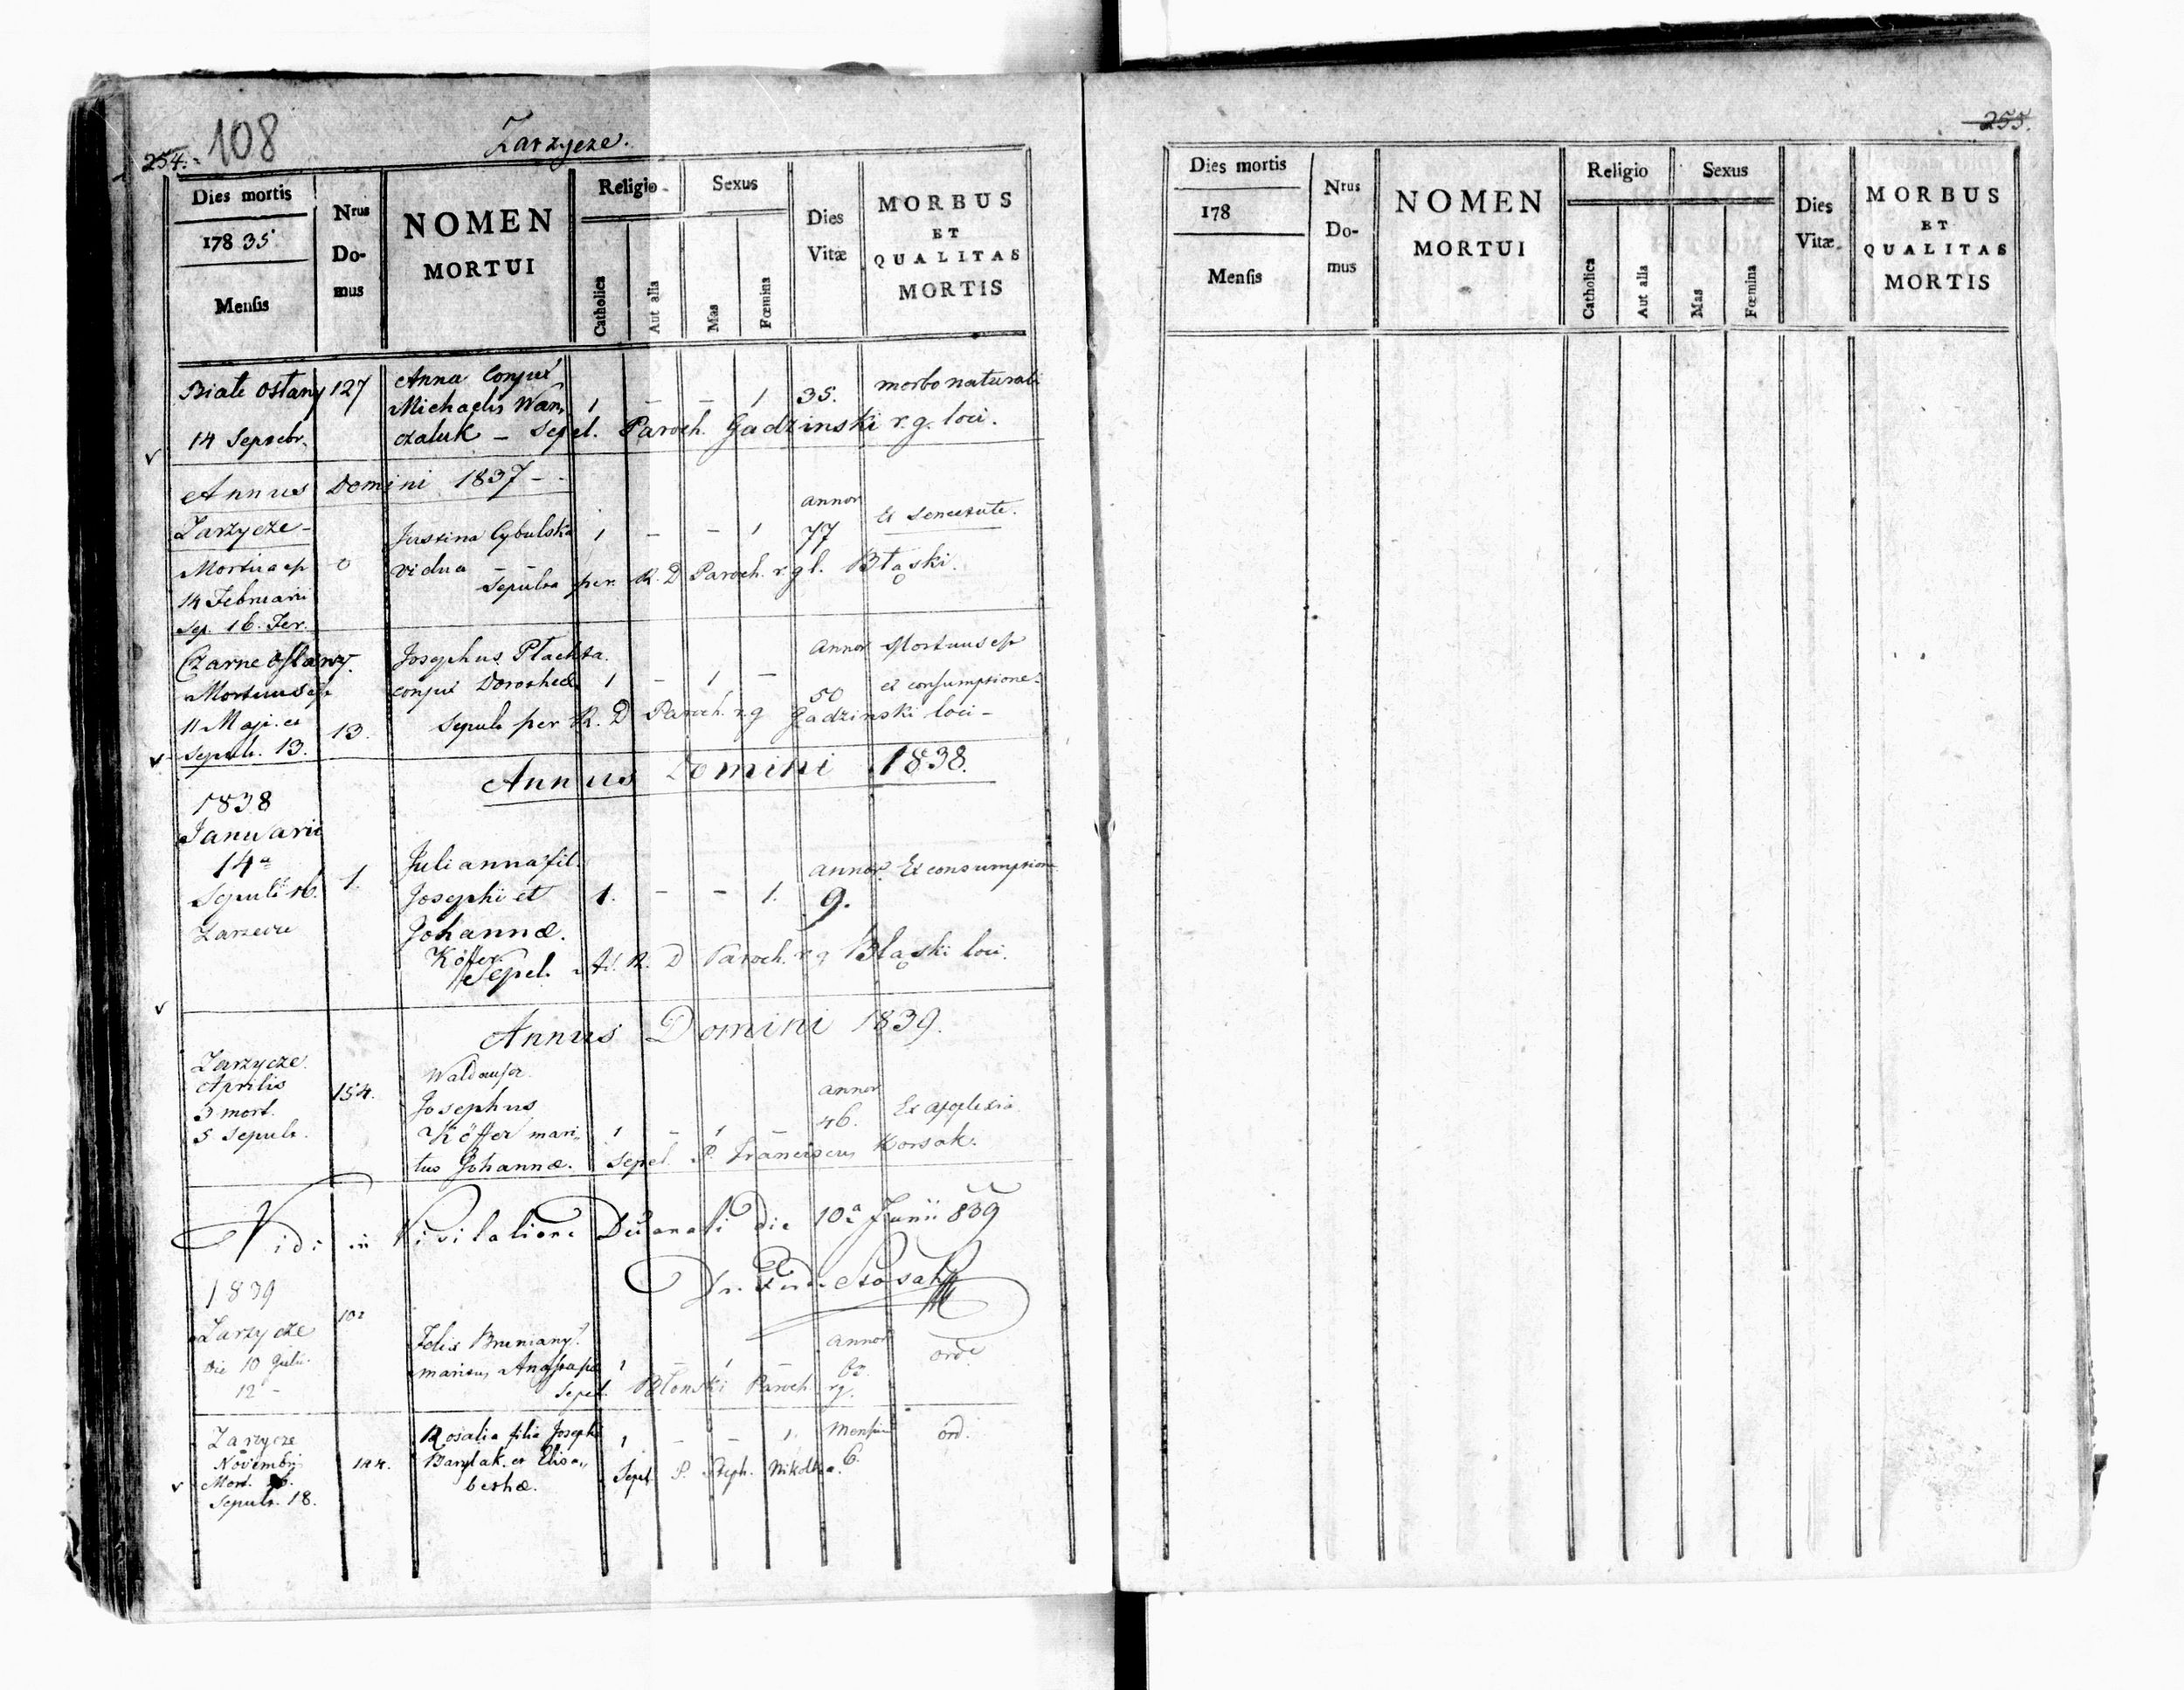 254.
108
Zarzycze.
Dies mortis
178 35
Mensis
Nrus
Do-
mus
NOMEN
MORTUI
Religio
Catholica
Aut alia
Sexus
Mas
Fœmina
Dies
Vitæ
MORBUS
ET
QUALITAS
MORTIS
Białe Osławy 127 Anna Conjux morbo naturali
Michaelis Wan, 1 – – 1 35.
14 Septebr. czaluk – Sepel. Paroch. Gadzinski r. g. loci.
Annus Domini 1837 – -
Zarzycze – Justina Cybulska 1 – – 1 annor 77 Ex Senectute.
Mortua est 0 vidua – –
Sepulta per R. D Paroch. r. g l. Błąski.
14 Februarii
Sep. 16. Fer.
Czarne Osławy. Josephus Płachta. Annor Mortuus est
Mortuus est conjux Dorotheæ 1 – 1 – 50 ex consumptione.
11 Maji. et 13. Sepult per R. D Paroch. r. g Gadzinski loci –
Sepult. 13.
Annus Domini 1838.
1838
Januarii
14a
Sepult 16. 1. Julianna fil. annor. Ex consumptione
Josephi et 1. – – 1. 9.
Johannæ.
Köffer
Sepel. R. D Paroch. r. g Błąski loci.
Annus Domini 1839.
Zarzycze.
Aprilis 154.
3 mort.
5 Sepult.
Josephus annor 46. Ex apoplexia
Köffer mari„ 1 – 1 –
tus Johannæ. Sepel. P. Franciscus Korsak.
Vidi in Visitatione Decanali die 10a Junii 839
1839
Zarzycze 102
die 10 Julii.
12 –
Felix annor ord
maritus 1 – 1 –
Sepel. Błonski Paroch. rg.
Zarzycze 144. Rosalia filia Josephi 1 – – 1. Mensium 6. ord.
Novembri
Mort. 16.
Sepult. 18.
Barylak. et Elisa„
bethæ.
Sepel P. Steph.
255.
Dies mortis
178
Mensis
Nrus
Do-
mus
NOMEN
MORTUI
Religio
Catholica
Aut alia
Sexus
Mas
Fœmina
Dies
Vitæ
MORBUS
ET
QUALITAS
MORTIS